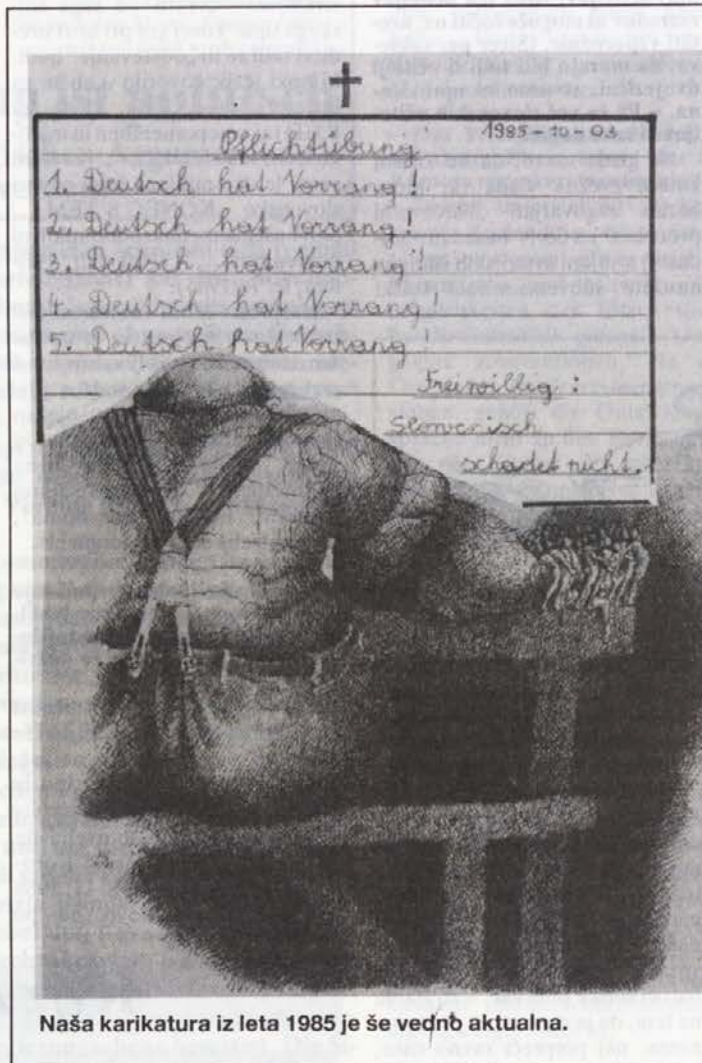 1985-10-03
Pflichtübung
1. Deutsch hat Vorrang!
2. Deutsch hat Vorrang!
3. Deutsch hat Vorrang!
4. Deutsch hat Vorrang!
5. Deutsch hat Vorrang!
Freiwillig:
Slowenisch
schadet nicht.
Naša karikatura iz leta 1985 je še vedno aktualna.